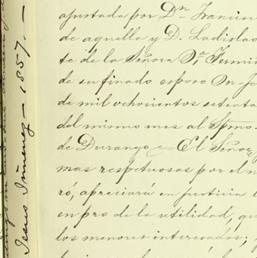 ajustada por Dn. Francis
de aquella y D. Ladislao
te de la Señora Da. Fermi
de su finado esposo Dn. J
de mil ochocientos setenta
del mismo mes al
de Durango. El Señor
mas respetuosas por el
ró, apreciará en justicia l
en pro de la utilidad, qu
los menores interesados;
Jesus Jimenez - 1857. -